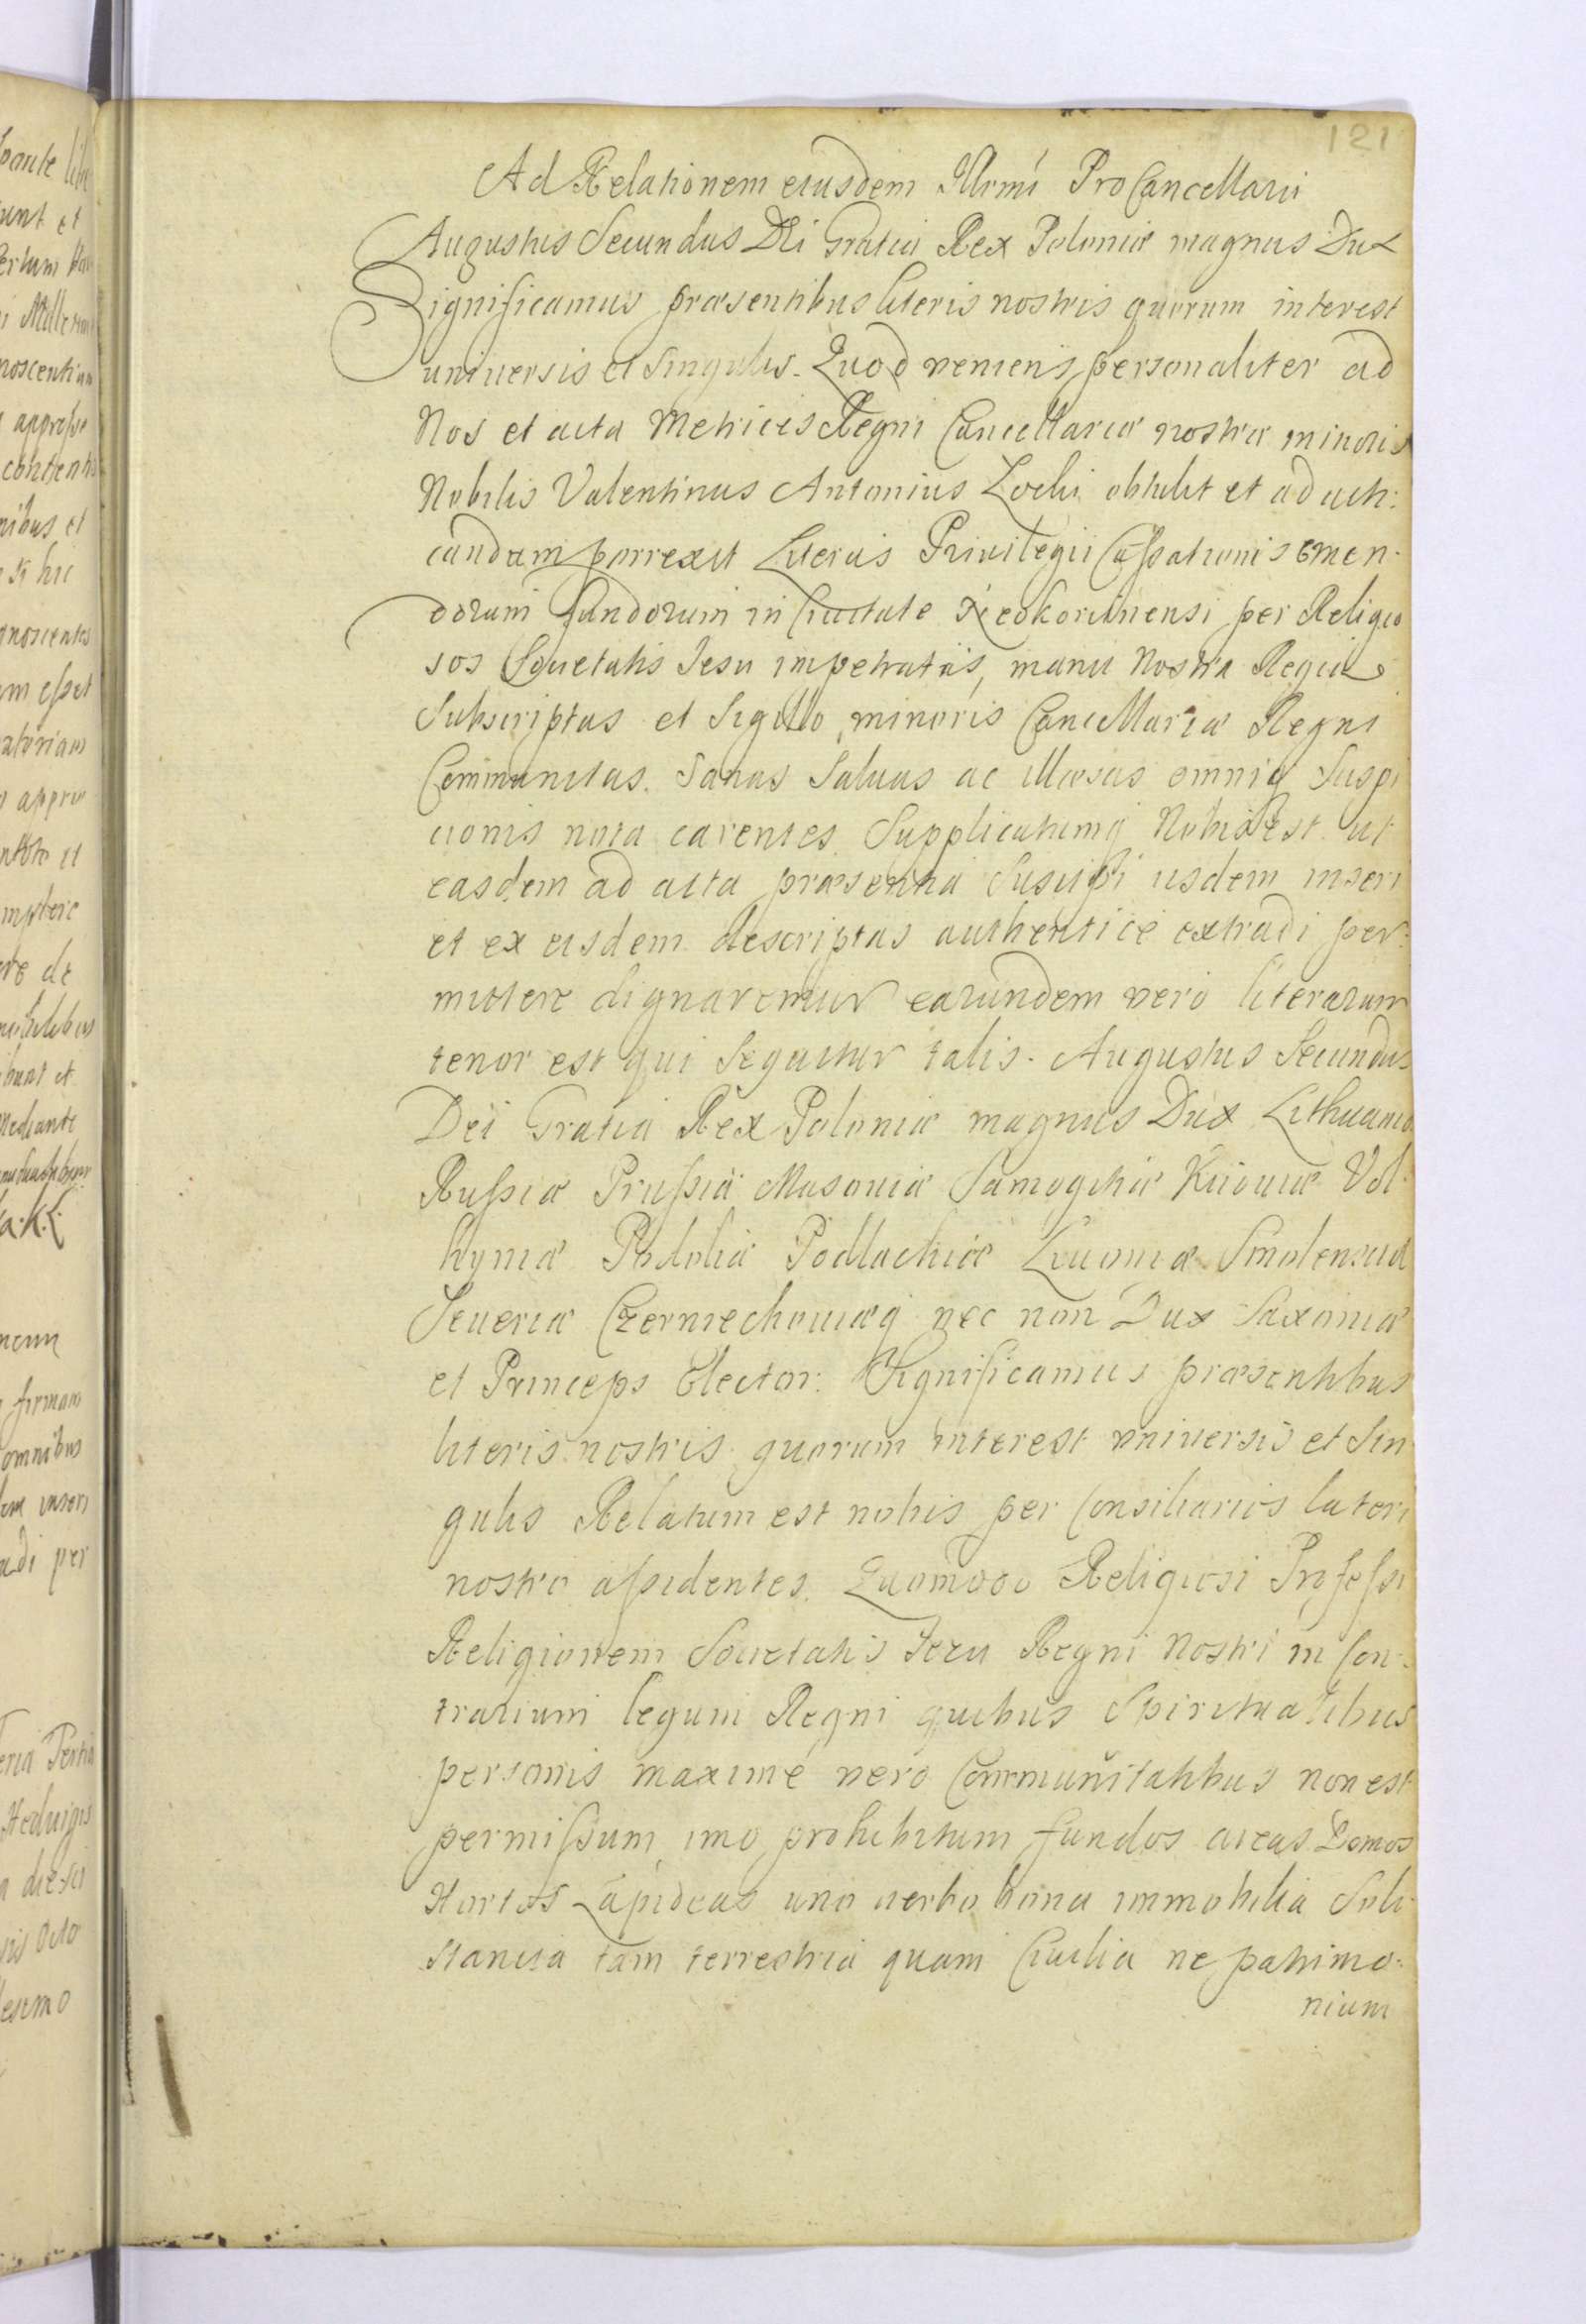 121
Ad Relationem eiusdem Illrmi ProCancellarii
Augustus Secundus DEi Gratia Rex Poloniæ magnus Dux
Significamus præsentibus literis nostris quorum interest
universis et singulis. Quod veniens personaliter ad
Nos et acta Metrices Regni Cancellariæ nostræ minoris
Nobilis Valentinus Antonius Locki obtulit et ad acti:
candum porrexit Literas Privilegii Cassationis emen-
dorum fundorum in Civitate Neokorcinensi per Religio
sos Societatis Jesu impetratas, manu Nostra Regia
Subscriptas et Sigillo minoris Cancellariæ Regni
Communitas. Sanas Salvas ac illæsas omniq Suspi
cionis nota carentes Supplicatumq Nobis est ut
easdem ad acta præsentia Suscipi iisdem inseri
et ex eisdem descriptas authenticè extradi per:
mittere dignaremur earundem vero literarum
tenor est qui Sequitur talis. Augustus Secundus
Dei Gratia Rex Poloniæ magnus Dux Lithuaniæ
Russiæ Prussiæ Masoviæ Samogitiæ Kiioviæ Vol-
hyniæ Podoliæ Podlachiæ Livoniæ Smolensciæ
Severiæ Czerniechoviæq nec non Dux Saxoniæ
et Princeps Elector. Significamus præsentibus
literis nostris quorum interest universis et Sin
gulis Relatum est nobis per Consiliarios lateri
nostro assidentes. Quomodo Religiosi Professi
Religionem Societatis Jezu Regni Nostri in Con-
trarium legum Regni quibus Spiritualibus
personis maximé vero Communitatibus non est
permissum imo prohibitum fundos areas Domos
Hortos Lapideas uno verbo bona immobilia Sub
stantia tam terrestria quam Civilia ne patrimo-
nium